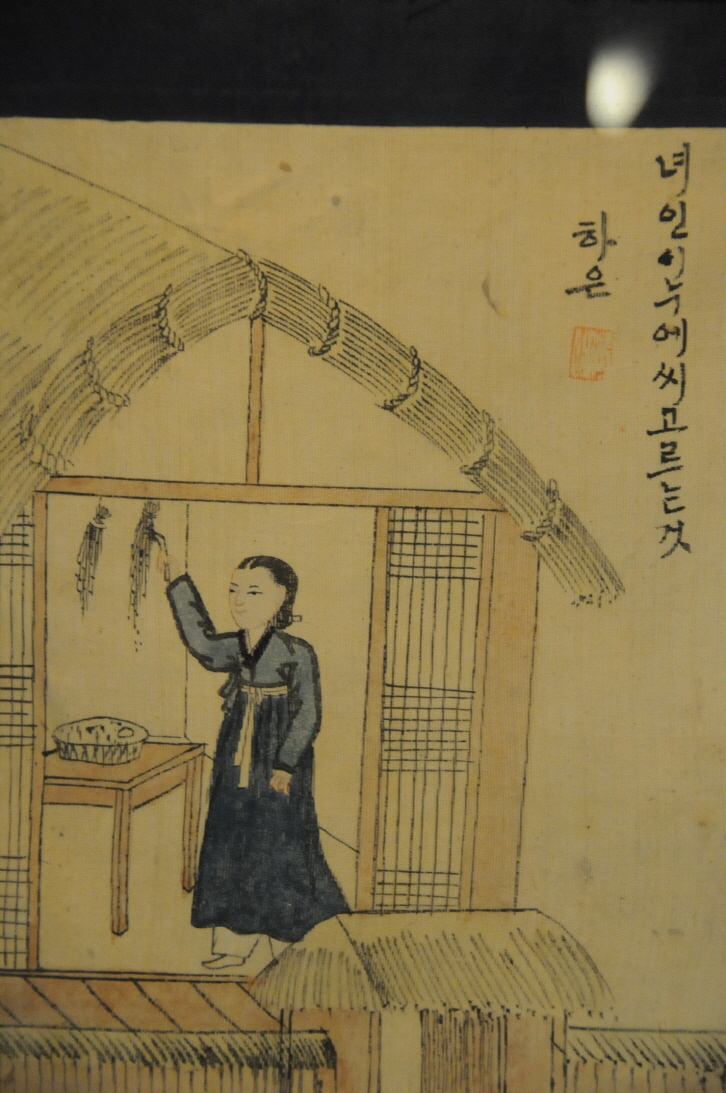 녀인이누에씨고르는것
하은